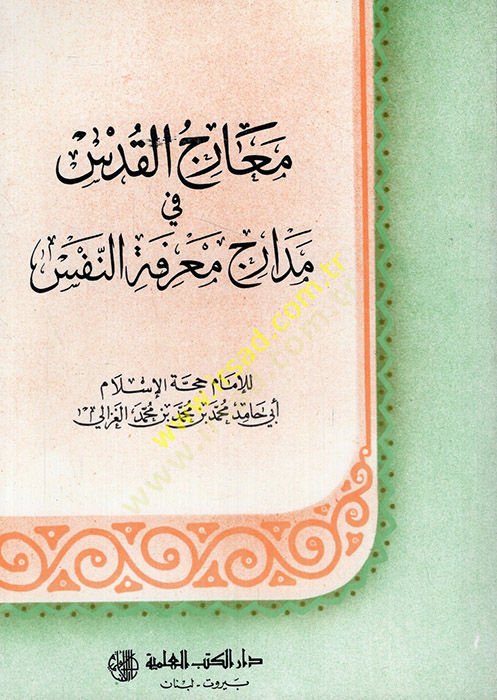 مَعَارِجُ القُدْسِ
في
مَدَارِج مَعْرِفَةِ النَّفْسِ
للإمَام حجة الإسْلَام
أبي حَامِد مُحَمَّد بن مُحَمَّد بن مُحَمَّد الغزالي
دار الكتب العلمية
بيروت - لبنان